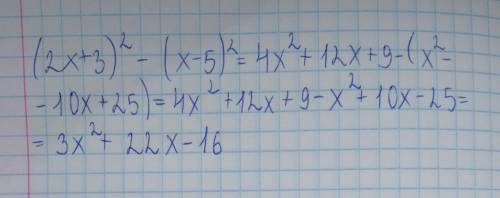 (2x+3)² - (x-5)² = 4x² + 12x + 9 - (x² -
- 10x + 25) = 4x² + 12x + 9 - x² + 10x - 25 =
= 3x² + 22x - 16